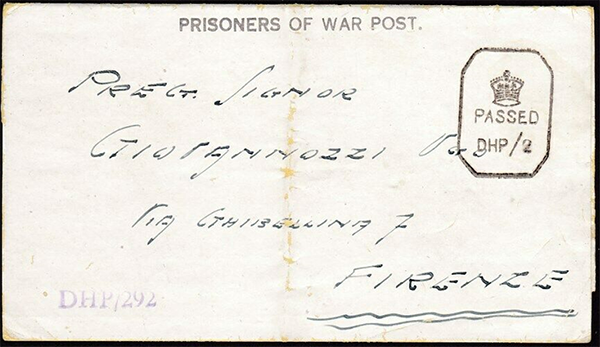 PRISONERS OF WAR POST.
PREG. SIGNOR
PASSED
DHP/2
GIOVANNOZZI
VIA GHIBELLINA 7
FIRENZE
DHP/292